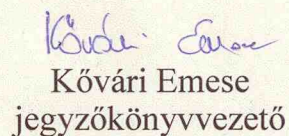 Kővári Emese
Kővári Emese
jegyzőkönyvvezető